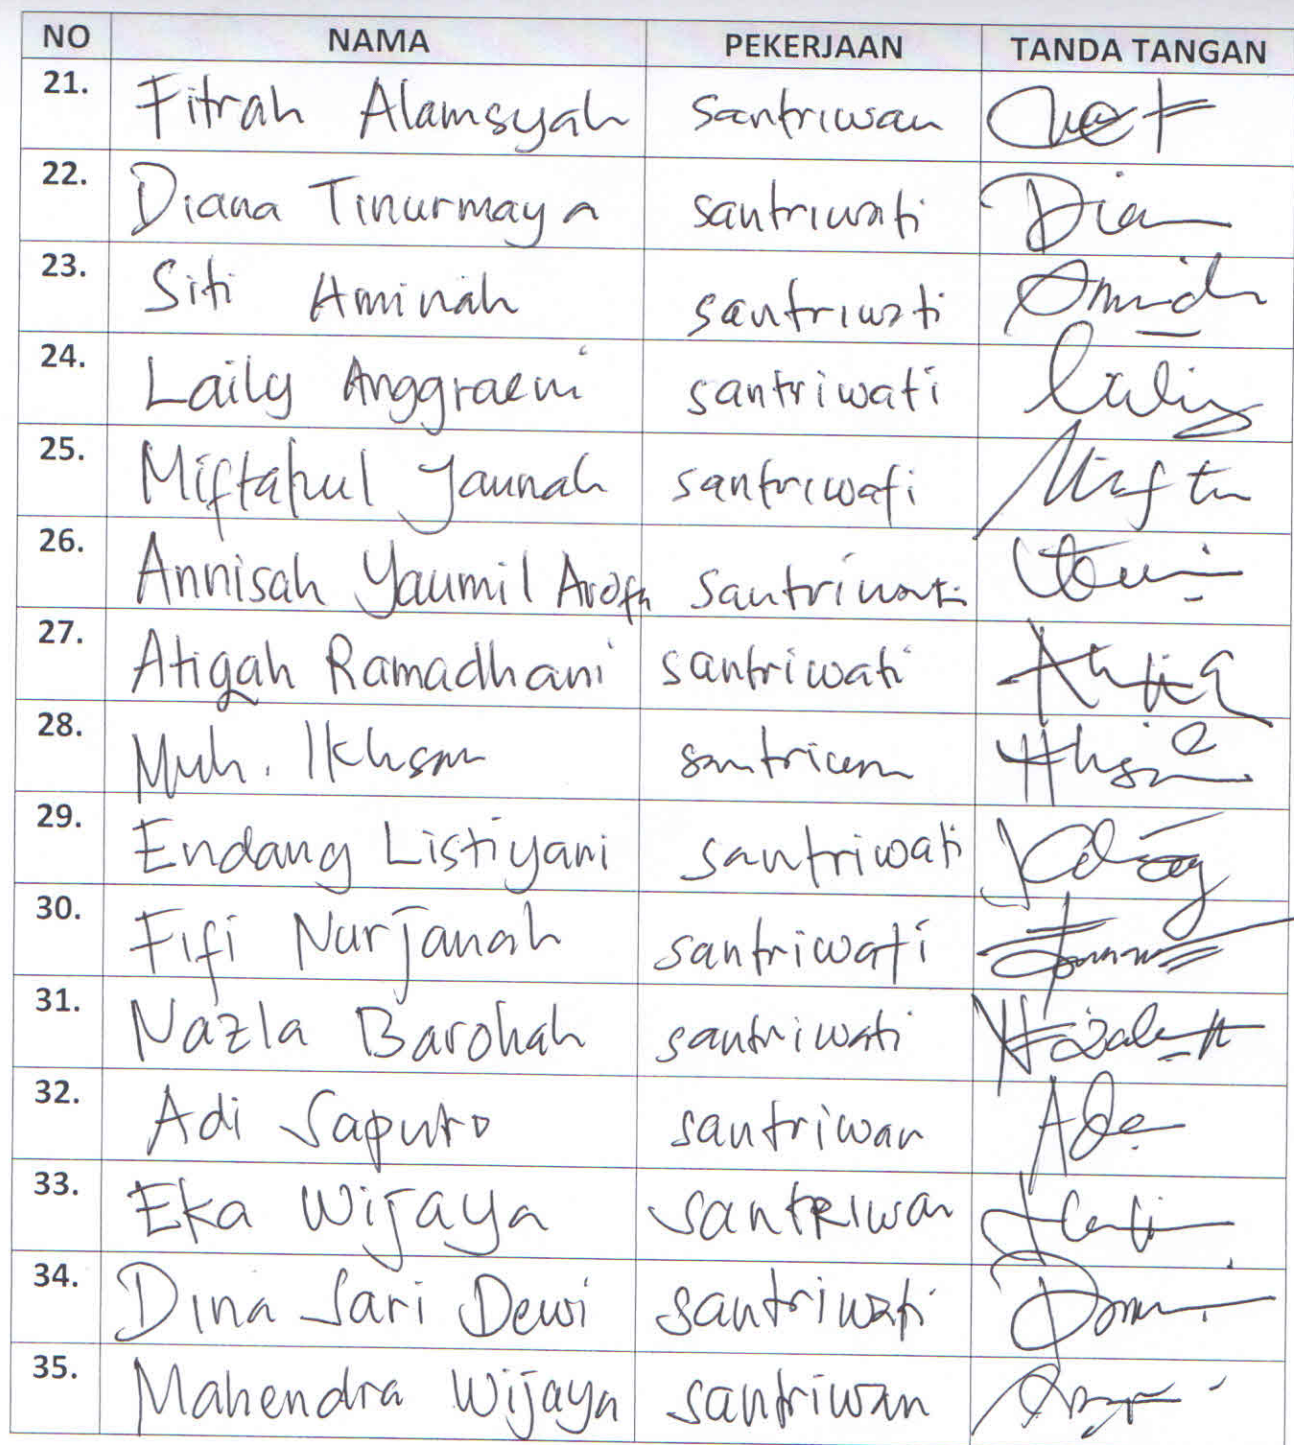 NO NAMA PEKERJAAN TANDA TANGAN
21. Fitrah Alamsyah santriwan
22. Diana Tinurmaya santriwati Dian
23. Siti Aminah santriwati
24. Laily Anggraeni santriwati
25. Miftahul Jannah santriwati Mifta
26. Annisah Yaumil Arofh santriwati
27. Atiqah Ramadhani santriwati
28. Muh. Ikhsan santriwan
29. Endang Listiyani santriwati
30. Fifi Nurjanah santriwati
31. Nazla Barokah santriwati
32. Adi Saputro santriwan
33. Eka Wijaya santriwan
34. Dina Sari Dewi santriwati
35. Mahendra Wijaya santriwan